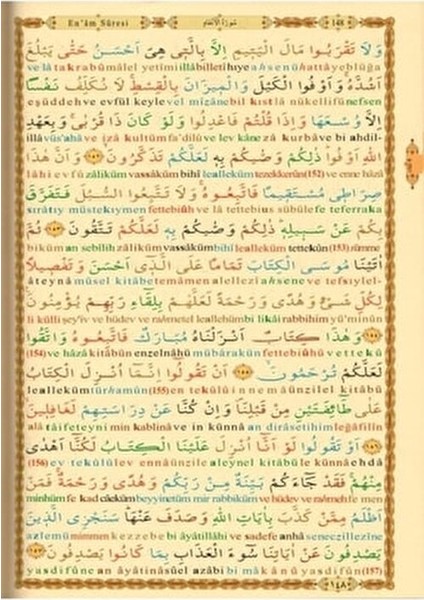 En'âm Sûresi سُورَةُ الْاَنْعَامِ 148
وَلَا تَقْرَبُوا مَالَ الْيَتِيمِ اِلَّا بِالَّتِي هِيَ اَحْسَنُ حَتّٰى يَبْلُغَ
ve lâ takrabû mâlel yetîmi illâ billetî hiye ahsenü hattâ yeblüğa
اَشُدَّهُ وَاَوْفُوا الْكَيْلَ وَالْمِيزَانَ بِالْقِسْطِ لَا نُكَلِّفُ نَفْسًا
eşüddeh ve evfül keyle vel mîzâne bil kıst lâ nükellifü nefsen
اِلَّا وُسْعَهَا وَاِذَا قُلْتُمْ فَاعْدِلُوا وَلَوْ كَانَ ذَا قُرْبٰى وَبِعَهْدِ
illâ vüs'ahâ ve izâ kultüm fa'dilû ve lev kâne zâ kurbâ ve bi ahdil-
اللّٰهِ اَوْفُوا ذٰلِكُمْ وَصّٰيكُمْ بِهِ لَعَلَّكُمْ تَذَكَّرُونَ ﴿١٥٢﴾ وَاَنَّ هٰذَا
lâhi evfû zâliküm vassâküm bihî lealleküm tezekkerûn (152) ve enne hâzâ
صِرَاطِي مُسْتَقِيمًا فَاتَّبِعُوهُ وَلَا تَتَّبِعُوا السُّبُلَ فَتَفَرَّقَ
sırâtıy müstekıymen fettebiûh ve lâ tettebius sübüle fe teferraka
بِكُمْ عَنْ سَبِيلِهِ ذٰلِكُمْ وَصّٰيكُمْ بِهِ لَعَلَّكُمْ تَتَّقُونَ ﴿١٥٣﴾ ثُمَّ
biküm an sebîlih zâliküm vassâküm bihî lealleküm tettekûn (153) sümme
اٰتَيْنَا مُوسَى الْكِتَابَ تَمَامًا عَلَى الَّذِي اَحْسَنَ وَتَفْصِيلًا
âteynâ mûsel kitâbe temâmen alellezî ahsene ve tefsıylel-
لِكُلِّ شَيْءٍ وَهُدًى وَرَحْمَةً لَعَلَّهُمْ بِلِقَاءِ رَبِّهِمْ يُؤْمِنُونَ
li külli şey'iv ve hüdev ve rahmetel leallehüm bi likâi rabbihim yü'minûn
﴿١٥٤﴾ وَهٰذَا كِتَابٌ اَنْزَلْنَاهُ مُبَارَكٌ فَاتَّبِعُوهُ وَاتَّقُوا
(154) ve hâzâ kitâbün enzelnâhü mübârakün fettebiûhü vettekû
لَعَلَّكُمْ تُرْحَمُونَ ﴿١٥٥﴾ اَنْ تَقُولُوا اِنَّمَا اُنْزِلَ الْكِتَابُ
lealleküm türhamûn (155) en tekûlû innemâ ünzilel kitâbü
عَلٰى طَائِفَتَيْنِ مِنْ قَبْلِنَا وَاِنْ كُنَّا عَنْ دِرَاسَتِهِمْ لَغَافِلِينَ
alâ tâifeteyni min kablinâ ve in künnâ an dirâsetihim leğâfilîn
﴿١٥٦﴾ اَوْ تَقُولُوا لَوْ اَنَّا اُنْزِلَ عَلَيْنَا الْكِتَابُ لَكُنَّا اَهْدٰى
(156) ev tekûlû lev ennâ ünzile aleynel kitâbü le künnâ ehdâ
مِنْهُمْ فَقَدْ جَاءَكُمْ بَيِّنَةٌ مِنْ رَبِّكُمْ وَهُدًى وَرَحْمَةٌ فَمَنْ
minhüm fe kad câeküm beyyinetüm mir rabbiküm ve hüdev ve rahmeh fe men
اَظْلَمُ مِمَّنْ كَذَّبَ بِاٰيَاتِ اللّٰهِ وَصَدَفَ عَنْهَا سَنَجْزِي الَّذِينَ
azlemü mimmen kezzebe bi âyâtillâhi ve sadefe anhâ seneczillezîne
يَصْدِفُونَ عَنْ اٰيَاتِنَا سُوءَ الْعَذَابِ بِمَا كَانُوا يَصْدِفُونَ ﴿١٥٧﴾
yasdifûne an âyâtinâ sûel azâbi bi mâ kânû yasdifûn (157)
١٤٨